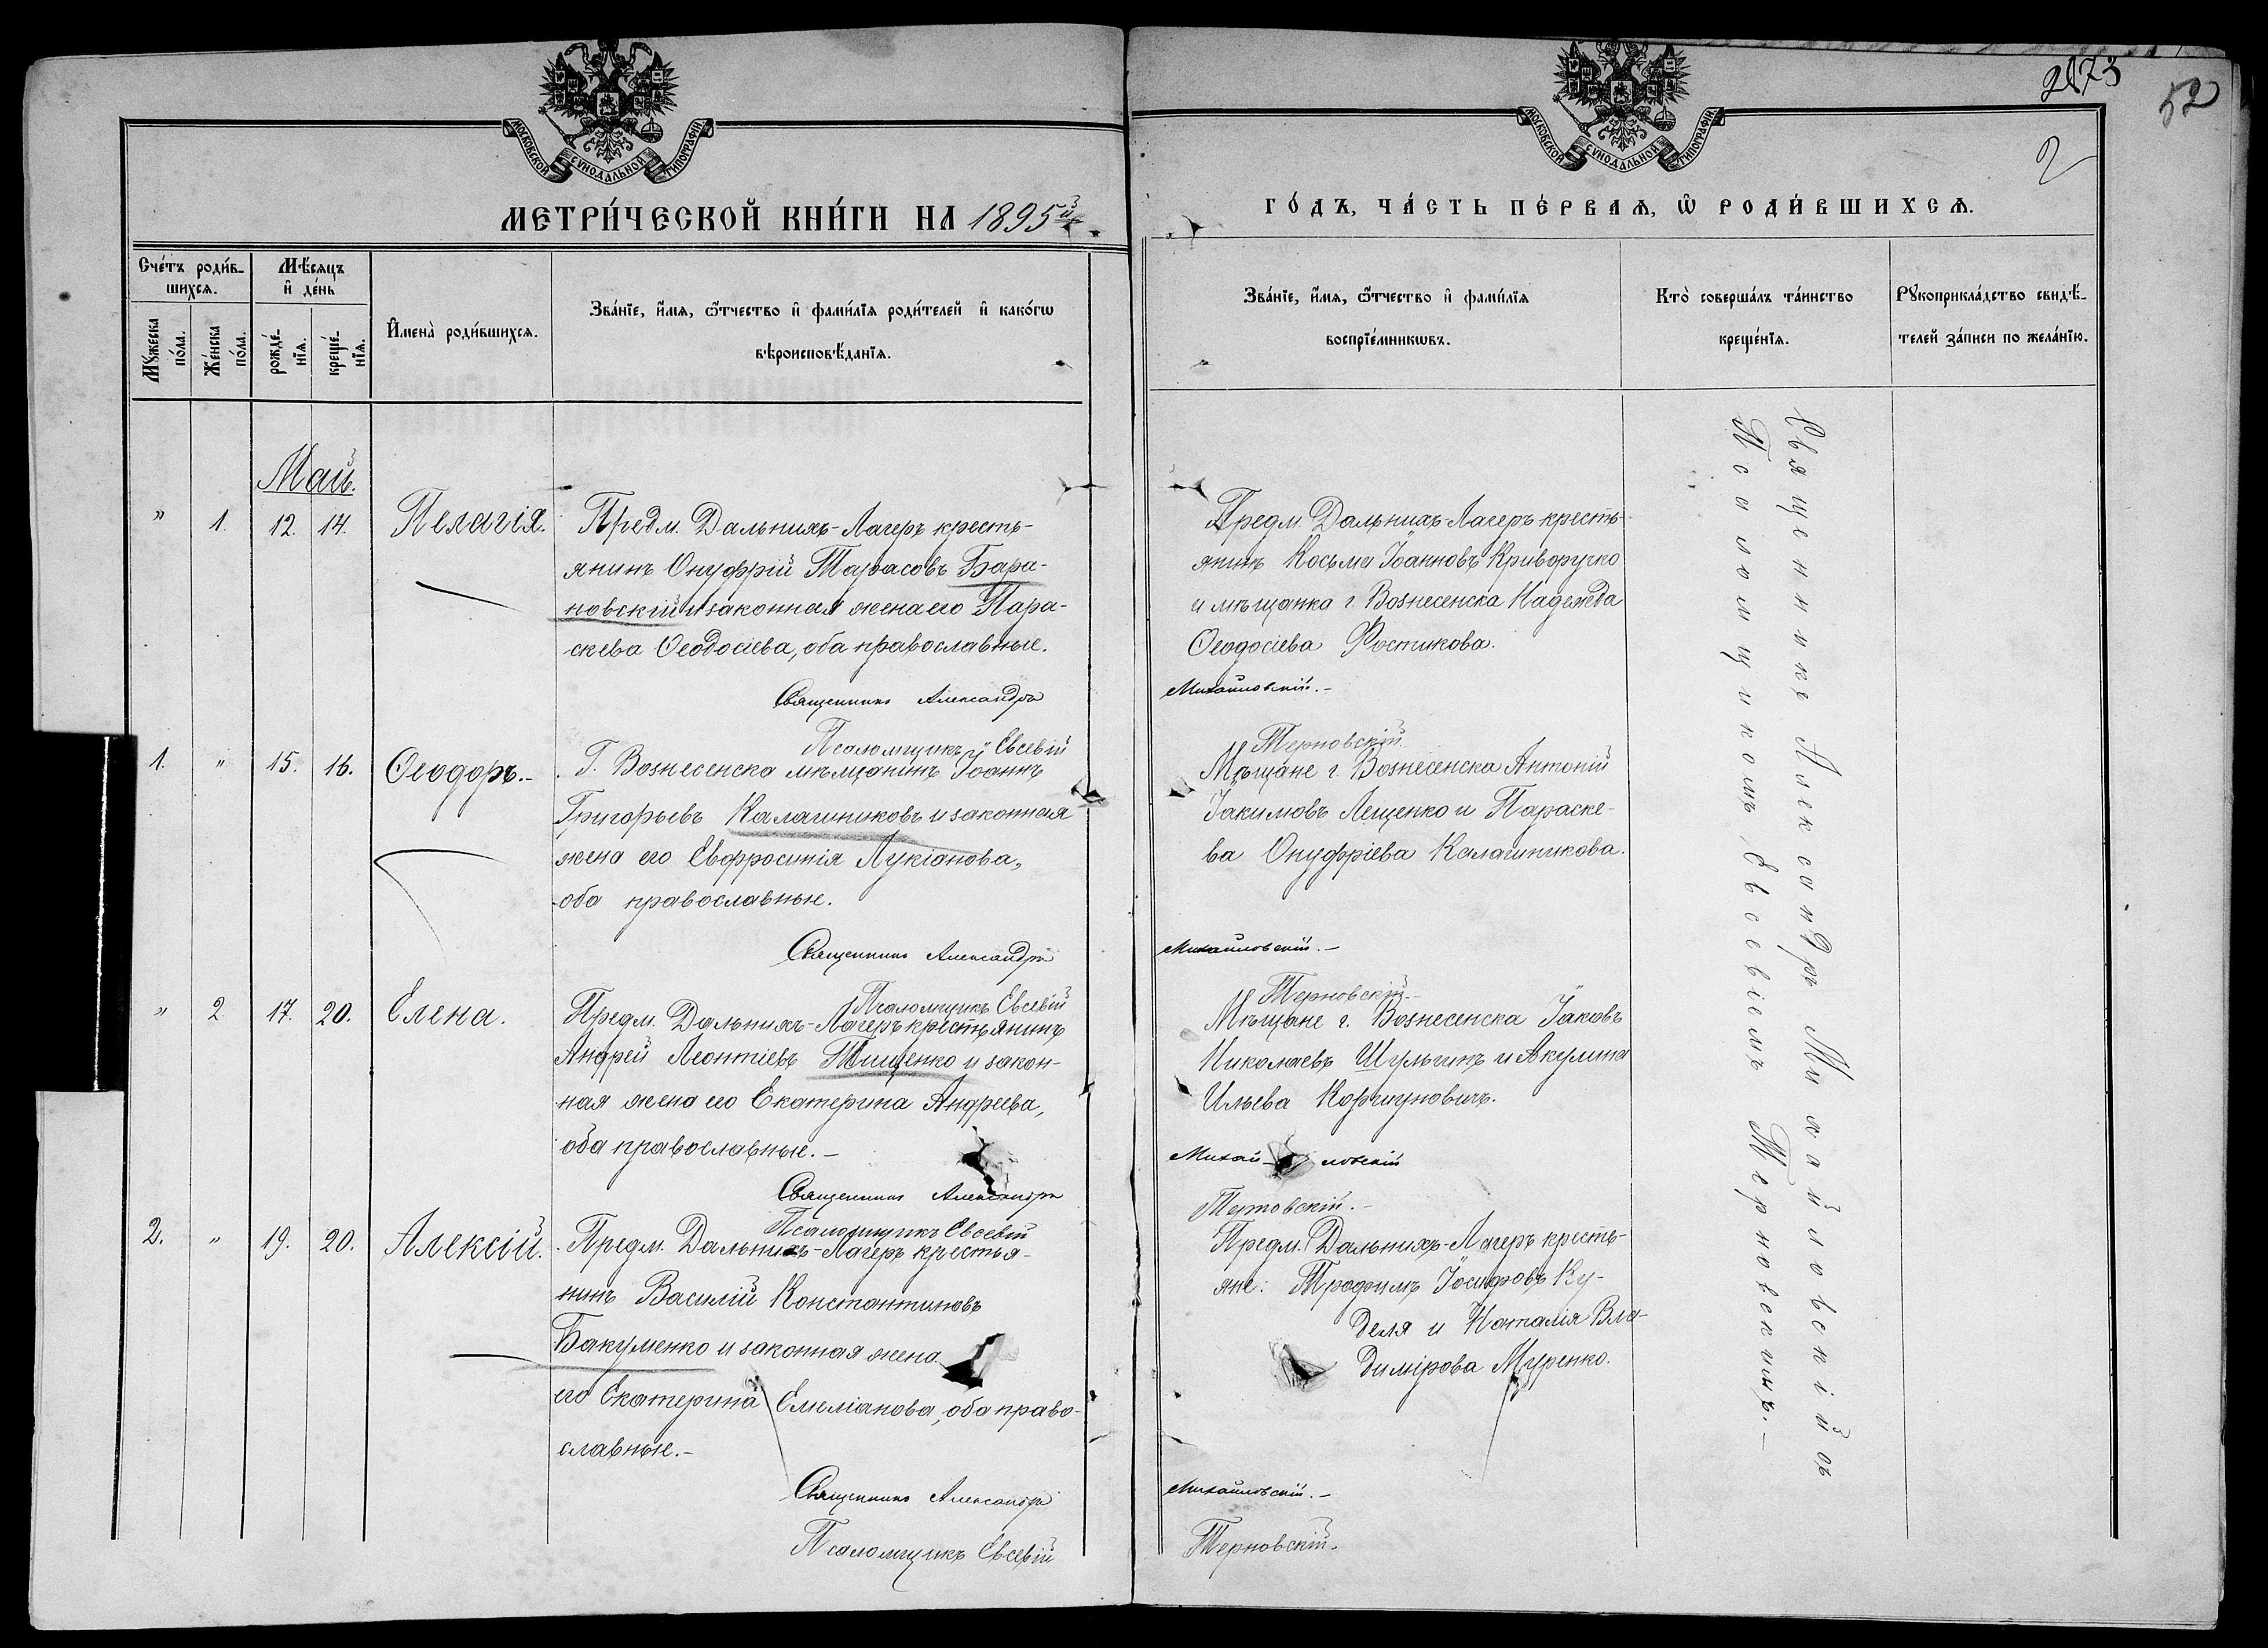 МОСКОВСКОЙ СѴНОДАЛЬНОЙ ТИПОГРАФІИ.
МЕТРИ́ЧЕСКОЙ КНИ́ГИ НА 1895й
Сче́тъ роди́в-
шихсѧ.
Мꙋ́жеска
по́ла.
Же́нска
по́ла.
Мѣ́сѧцъ
и҆ де́нь
рожде́-
нїѧ.
креще́-
нїѧ.
И҆мена̀ роди́вшихсѧ.
Зва́нїе, и҆́мѧ, ѻ҆́тчество и҆ фами́лїѧ роди́телей и҆ како́гѡ
вѣроисповѣ́данїѧ.
Май.
" 1. 12. 14. Пелагія.
Предм. Дальнихъ-Лагеръ кресть-
янинъ Онуфрій Тарасовъ Бара-
новскій и законная жена его Пара-
скева Ѳеодосіева, оба православные.
Священникъ Александръ
Псаломщикъ Евсевій
1. " 15. 16. Ѳеодоръ.-
Г. Вознесенска мѣщанинъ Іоаннъ
Григорьевъ Калашниковъ и законная
жена его Евфросинія Лукіанова,
оба православные.
Священникъ Александръ
Псаломщикъ Евсевій
" 2 17. 20. Елена.
Предм. Дальнихъ-Лагеръ крестьянинъ
Андрей Леонтіевъ Тищенко и закон-
ная жена его Екатерина Андреева,
оба православные.-
Священникъ Александръ
Псаломщикъ Евсевій
2. " 19. 20. Алексій.
Предм. Дальнихъ-Лагеръ крестья-
нинъ Василій Константиновъ
Бакуменко и законная жена
его Екатерина Емеліанова, оба право-
славные.-
Священникъ Александръ
Псаломщикъ Евсевій
МОСКОВСКОЙ СѴНОДАЛЬНОЙ ТИПОГРАФІИ.
52
2
ГО́ДЪ, ЧА́СТЬ ПЕ́РВАѦ, Ѡ҆ РОДИ́ВШИХСѦ.
Зва́нїе, и҆́мѧ, ѻ҆́тчество и҆ фами́лїѧ
воспрїе́мникѡвъ.
Кто̀ соверша́лъ та́инство
креще́нїѧ.
Рꙋкоприкла́дство свидѣ́-
телей за́писи по жела́нїю.
Предм. Дальнихъ-Лагеръ кресть-
янинъ Косьма Іоанновъ Криворучко
и мѣщанка г. Вознесенска Надежда
Ѳеодосіева Ростикова.
Михайловскій.-
Терновскій.
Мѣщане г. Вознесенска Антоній
Іакимовъ Лещенко и Параске-
ва Онуфріева Калашникова.
Михайловскій.-
Терновскій.-
Мѣщане г. Вознесенска Іаковъ
Николаевъ Шульгинъ и Акулина
Ильева Коршуновичъ.
Михай-ловскій
Терновскій.-
Предм. Дальнихъ-Лагеръ кресть-
яне: Трофимъ Іосифовъ Ку-
деля и Наталія Вла-
димірова Муренко.
Михайловскій.-
Терновскій.
Священникъ Александръ Михайловскій съ
Псаломщикомъ Евсевіемъ Терновскимъ.-